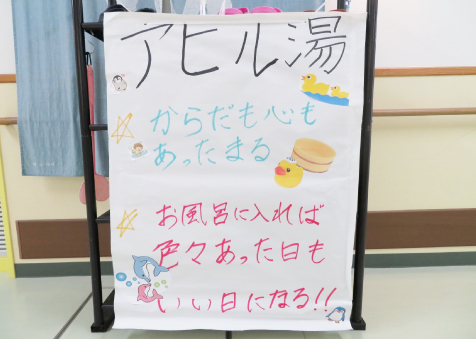 アヒル湯
からだも心も
あったまる
お風呂に入れば
色々あった日も
いい日になる!!